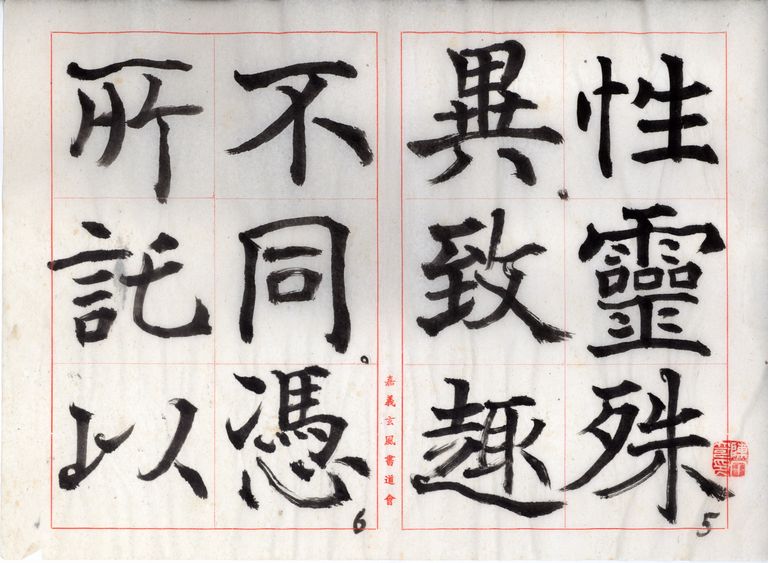 性靈殊
異致趣
不同。憑
所託以
嘉義玄風書道會
5
6